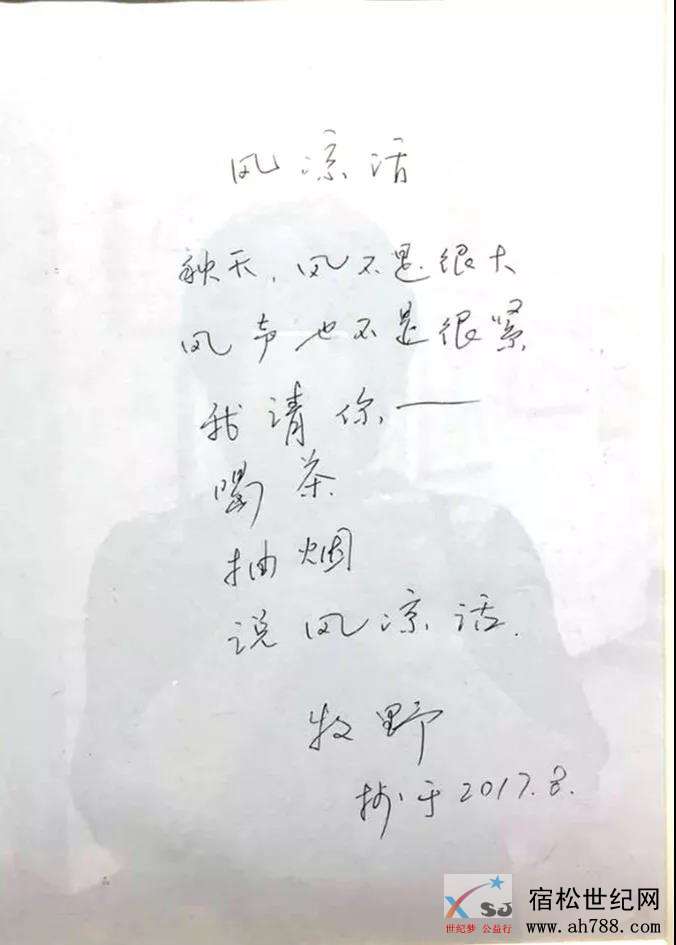 风凉话
秋天，风不是很大
风声也不是很紧
我请你——
喝茶
抽烟
说风凉话.
牧野
抄于2017.8.
XSJ
世纪梦 公益行
宿松世纪网
www.ah788.com